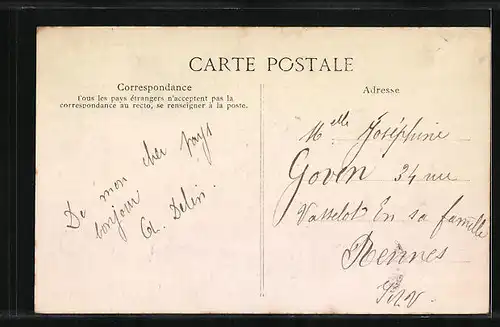 CARTE POSTALE
Correspondance
Tous les pays étrangers n'acceptent pas la
correspondance au recto, se renseigner à la poste.
Adresse
De mon cher pays
bonjour
Melle Joséphine
Goven 34 rue
Vasselot En sa famille
Rennes